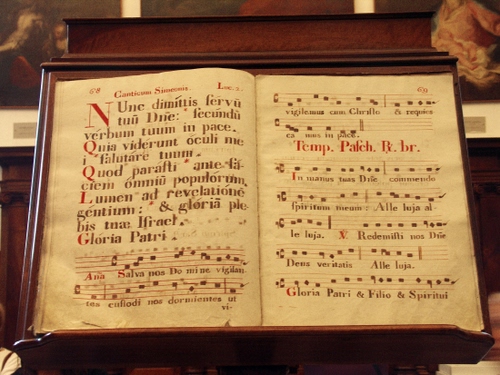 68 Canticum Simeonis. Luc. 2.
Nunc dimittis servū
tuū Dñe: * secundū
verbum tuum in pace.
Quia viderunt oculi me
i * salutare tuum.
Quod parasti * ante fá-
ciem omniū populorum,
Lumen ad revelationē
gentium: * & glóriā ple
bis tuæ Israel.
Gloria Patri.
Aña Salva nos Domine vigilan
tes custodi nos dormientes ut
vi-
69
vigilemus cum Christo & requies
ca mus in pace.
Temp. Pasch. ℟. br.
In manus tuas Dñe commendo
spiritum meum: Alle luja al-
le luja. ℣. Redemisti nos Dñe
Deus veritatis Alle luja.
Gloria Patri & Filio & Spiritui